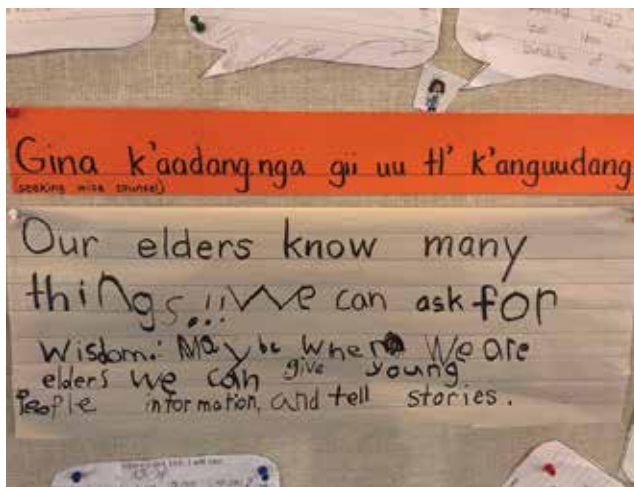 Gina k'aadang.nga gii uu tl' k'anguudang
(seeking wise counsel)
Our elders know many
things..!! We can ask for
Wisdom. Maybe when We are
elders we can give young
People information, and tell stories.